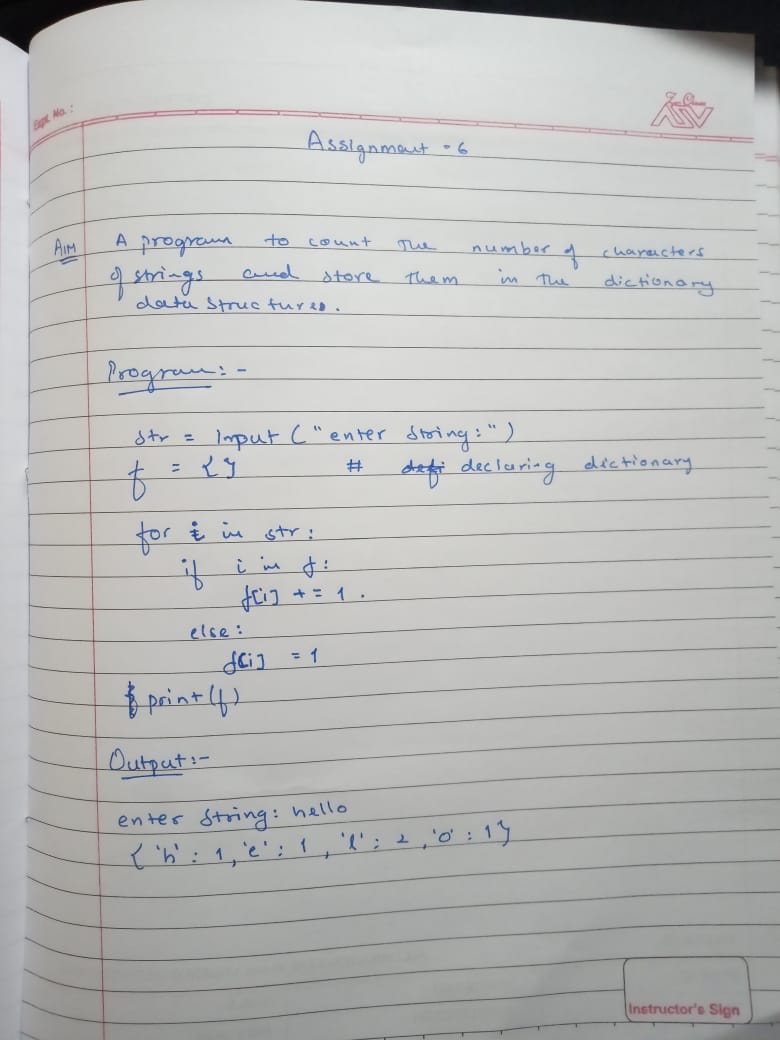 Expt. No. :
Assignment - 6
AIM A program to count the number of characters
of strings and store them in the dictionary
data structures.
Program: -
str = Input ("enter string:")
f = {} # defi declaring dictionary
for i in str:
if i in f:
f[i] += 1.
else:
f[i] = 1
print(f)
Output:-
enter string: hello
{'h': 1, 'e': 1, 'l': 2, 'o': 1}
Instructor's Sign